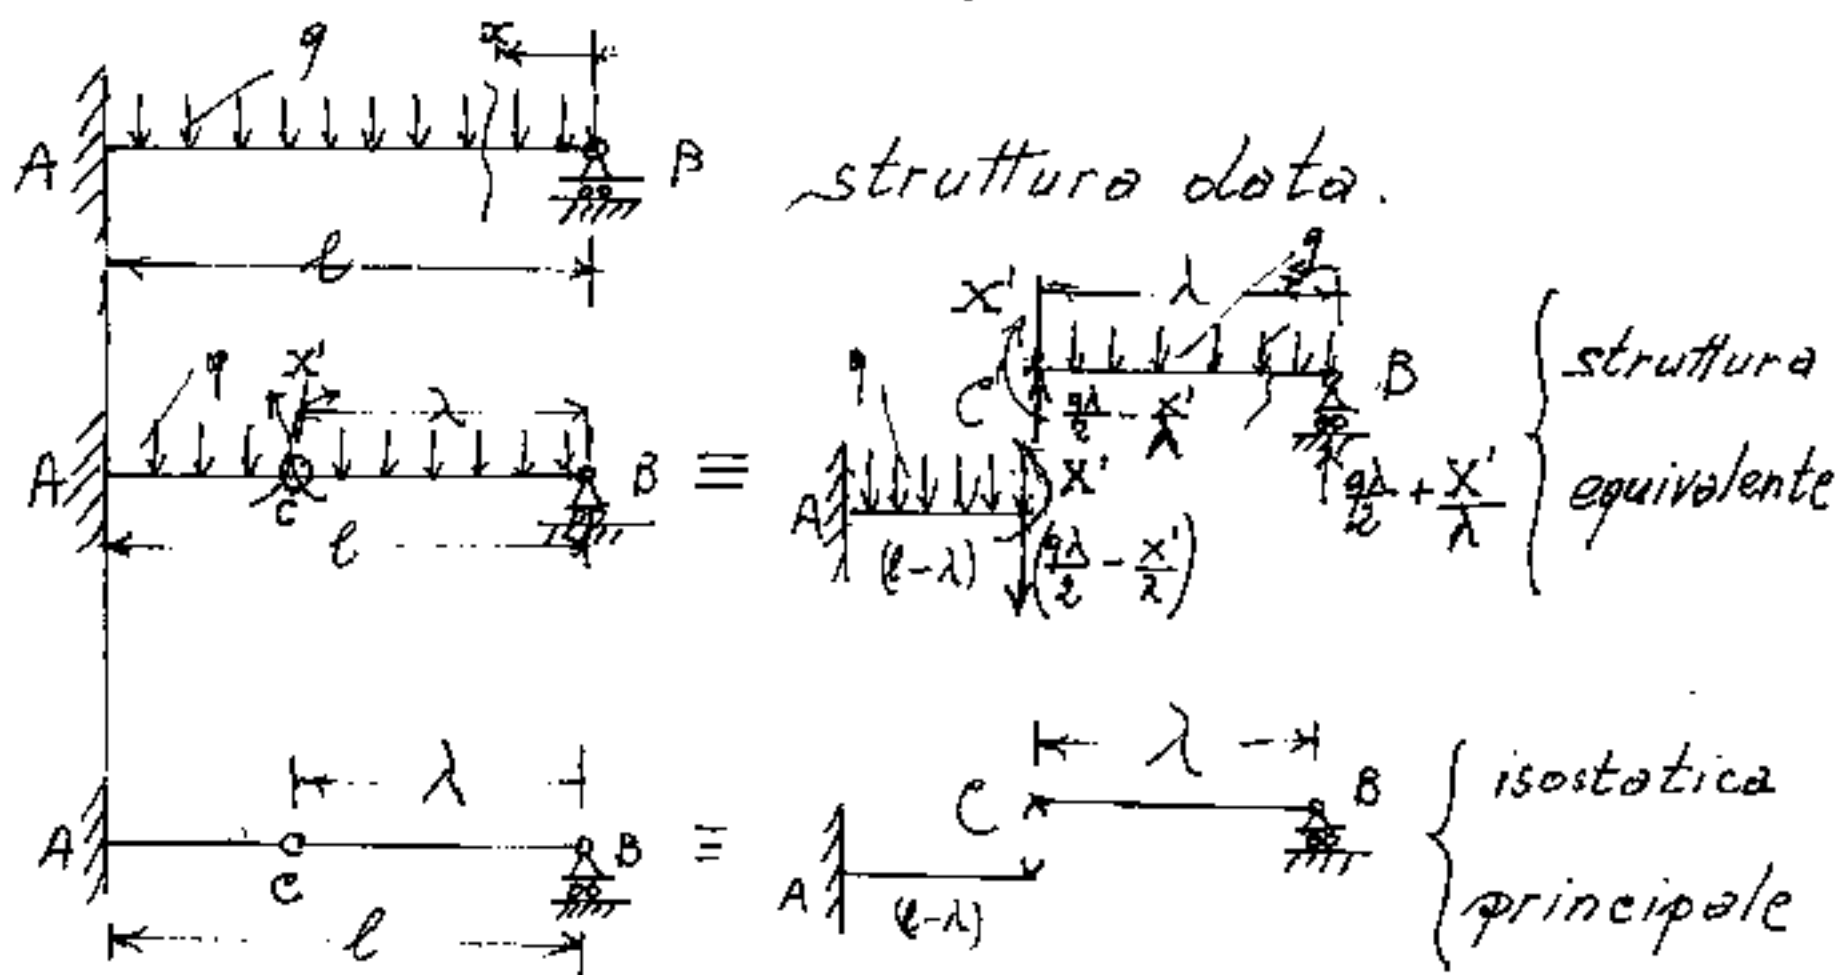 q x
A B struttura data.
l
q X' λ
A C B ≡
l
X' λ q
C qλ/2 - X'/λ B
q X' qλ/2 + X'/λ
A (l-λ) (qλ/2 - X'/λ)
struttura
equivalente
λ
A C B ≡
l
λ
C B
A (l-λ)
isostatica
principale